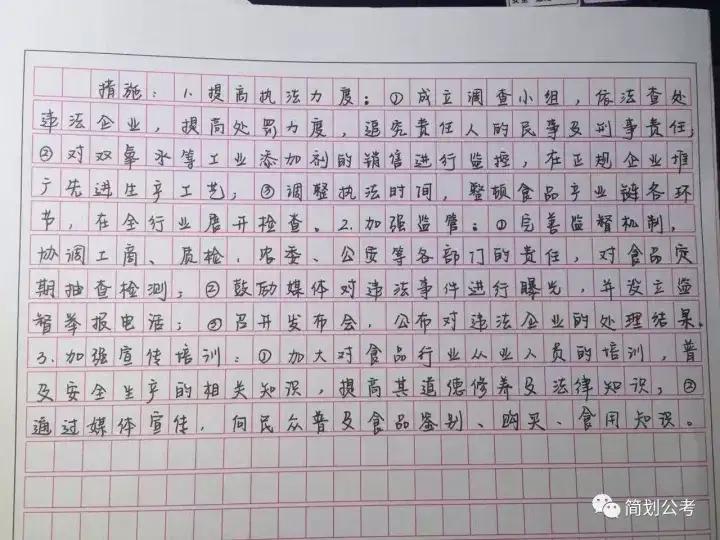 措施：1.提高执法力度：①成立调查小组，依法查处
违法企业，提高处罚力度，追究责任人的民事及刑事责任；
②对双氧水等工业添加剂的销售进行监控，在正规企业推
广先进生产工艺；③调整执法时间，整顿食品产业链各环
节，在全行业展开检查。2.加强监管：①完善监督机制，
协调工商、质检、农委、公安等各部门的责任，对食品定
期抽查检测；②鼓励媒体对违法事件进行曝光，并设立监
督举报电话；③召开发布会，公布对违法企业的处理结果。
3.加强宣传培训：①加大对食品行业从业人员的培训，普
及安全生产的相关知识，提高其道德修养及法律知识；②
通过媒体宣传，向民众普及食品鉴别、购买、食用知识。
简划公考